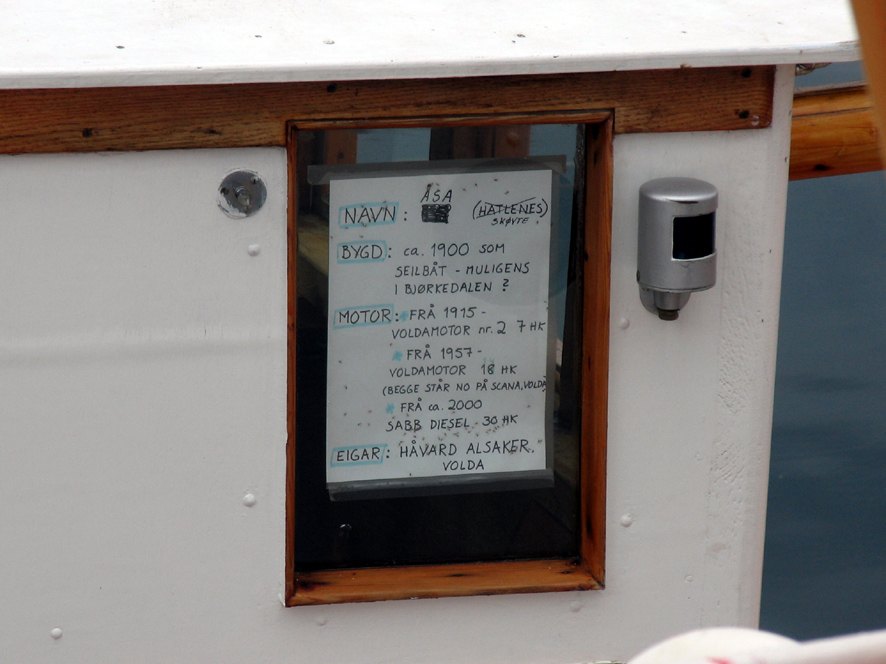 ÅSA
NAVN : (HATLENES)
SKØYTE
BYGD : ca. 1900 SOM
SEILBÅT - MULIGENS
I BJØRKEDALEN ?
MOTOR : * FRÅ 1915 -
VOLDAMOTOR nr. 2 7 HK
* FRÅ 1957 -
VOLDAMOTOR 18 HK
(BEGGE STÅR NO PÅ SCANA, VOLDA)
* FRÅ ca. 2000
SABB DIESEL - 30 HK
EIGAR : HÅVARD ALSAKER
VOLDA